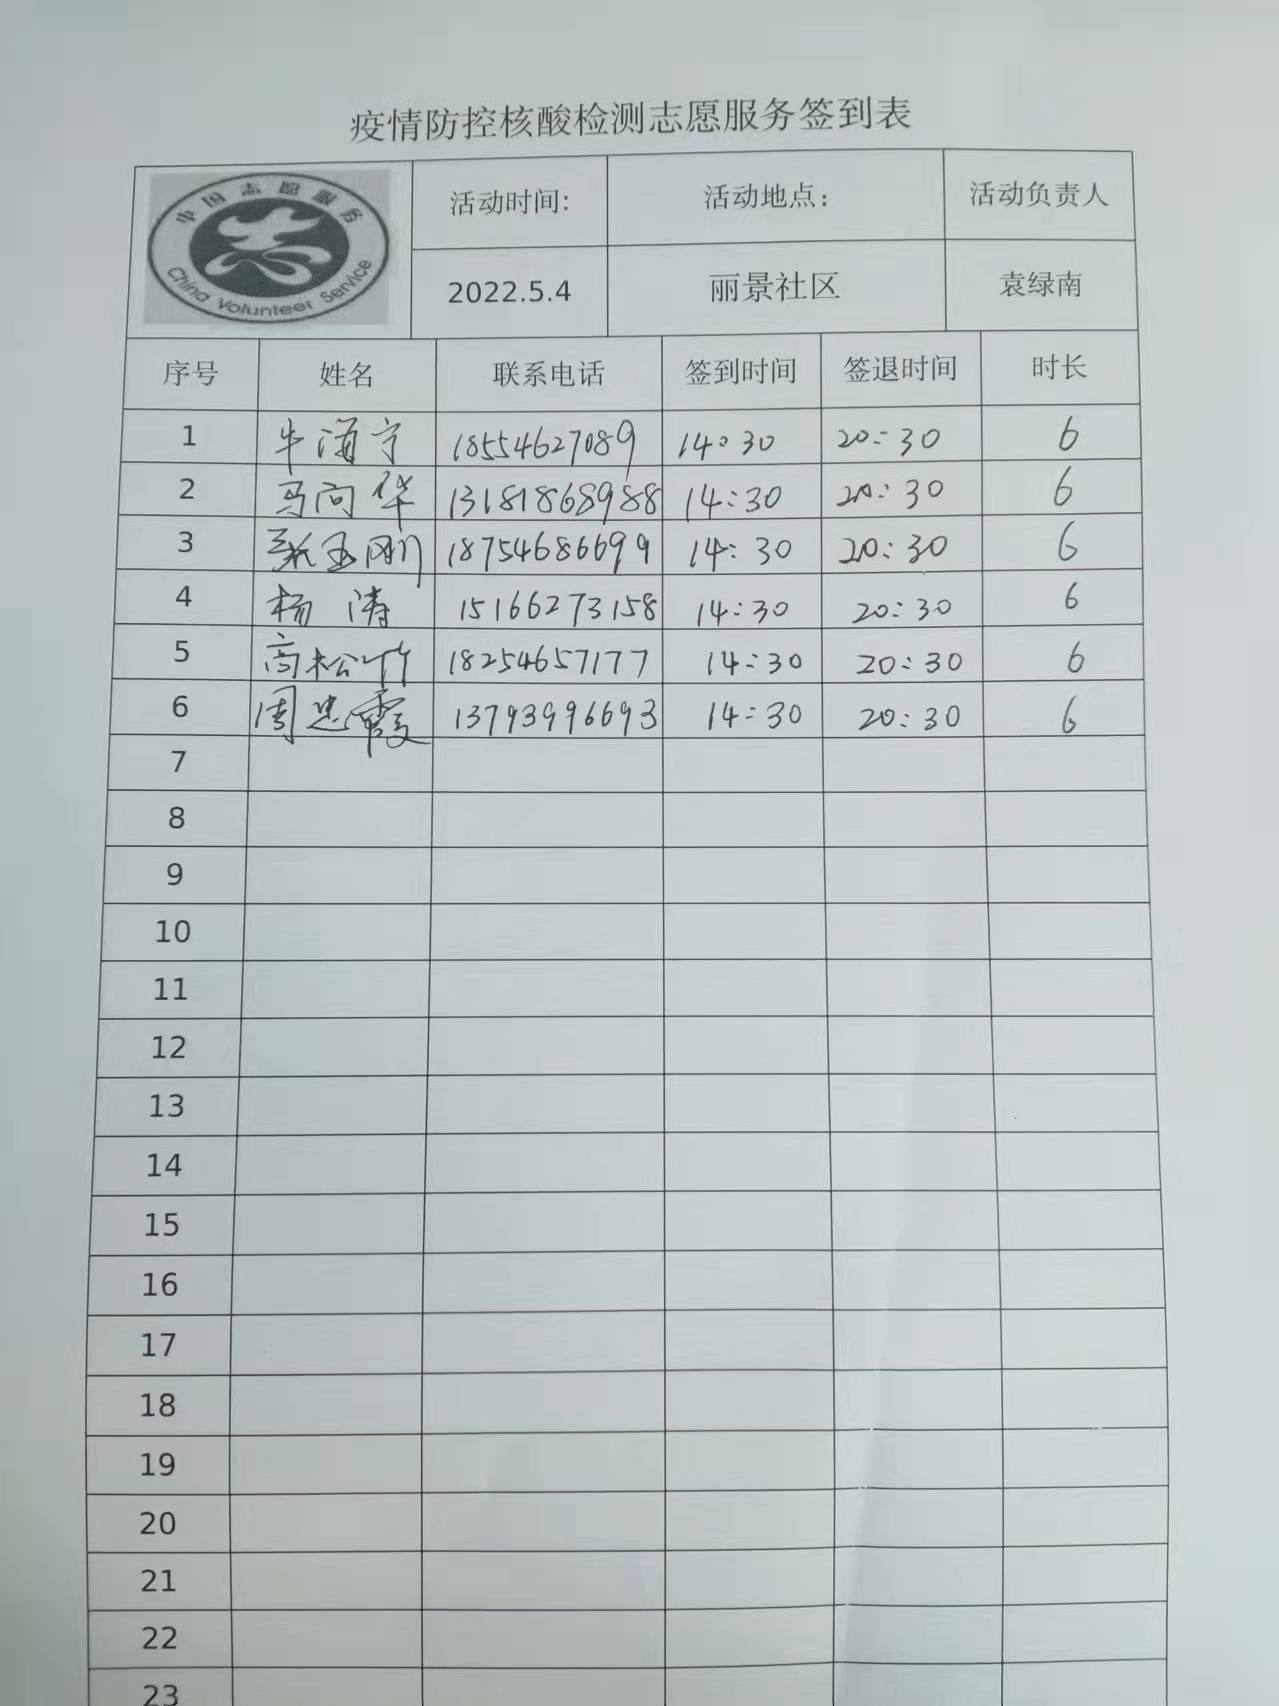 疫情防控核酸检测志愿服务签到表
中国志愿服务
China Volunteer Service
活动时间: 活动地点: 活动负责人
2022.5.4 丽景社区 袁绿南
序号 姓名 联系电话 签到时间 签退时间 时长
1 牛海宁 18554627089 14:30 20:30 6
2 马向华 13181868988 14:30 20:30 6
3 玉刚 18754686699 14:30 20:30 6
4 杨涛 15166273158 14:30 20:30 6
5 高松竹 18254657177 14:30 20:30 6
6 周忠霞 13793996693 14:30 20:30 6
7
8
9
10
11
12
13
14
15
16
17
18
19
20
21
22
23